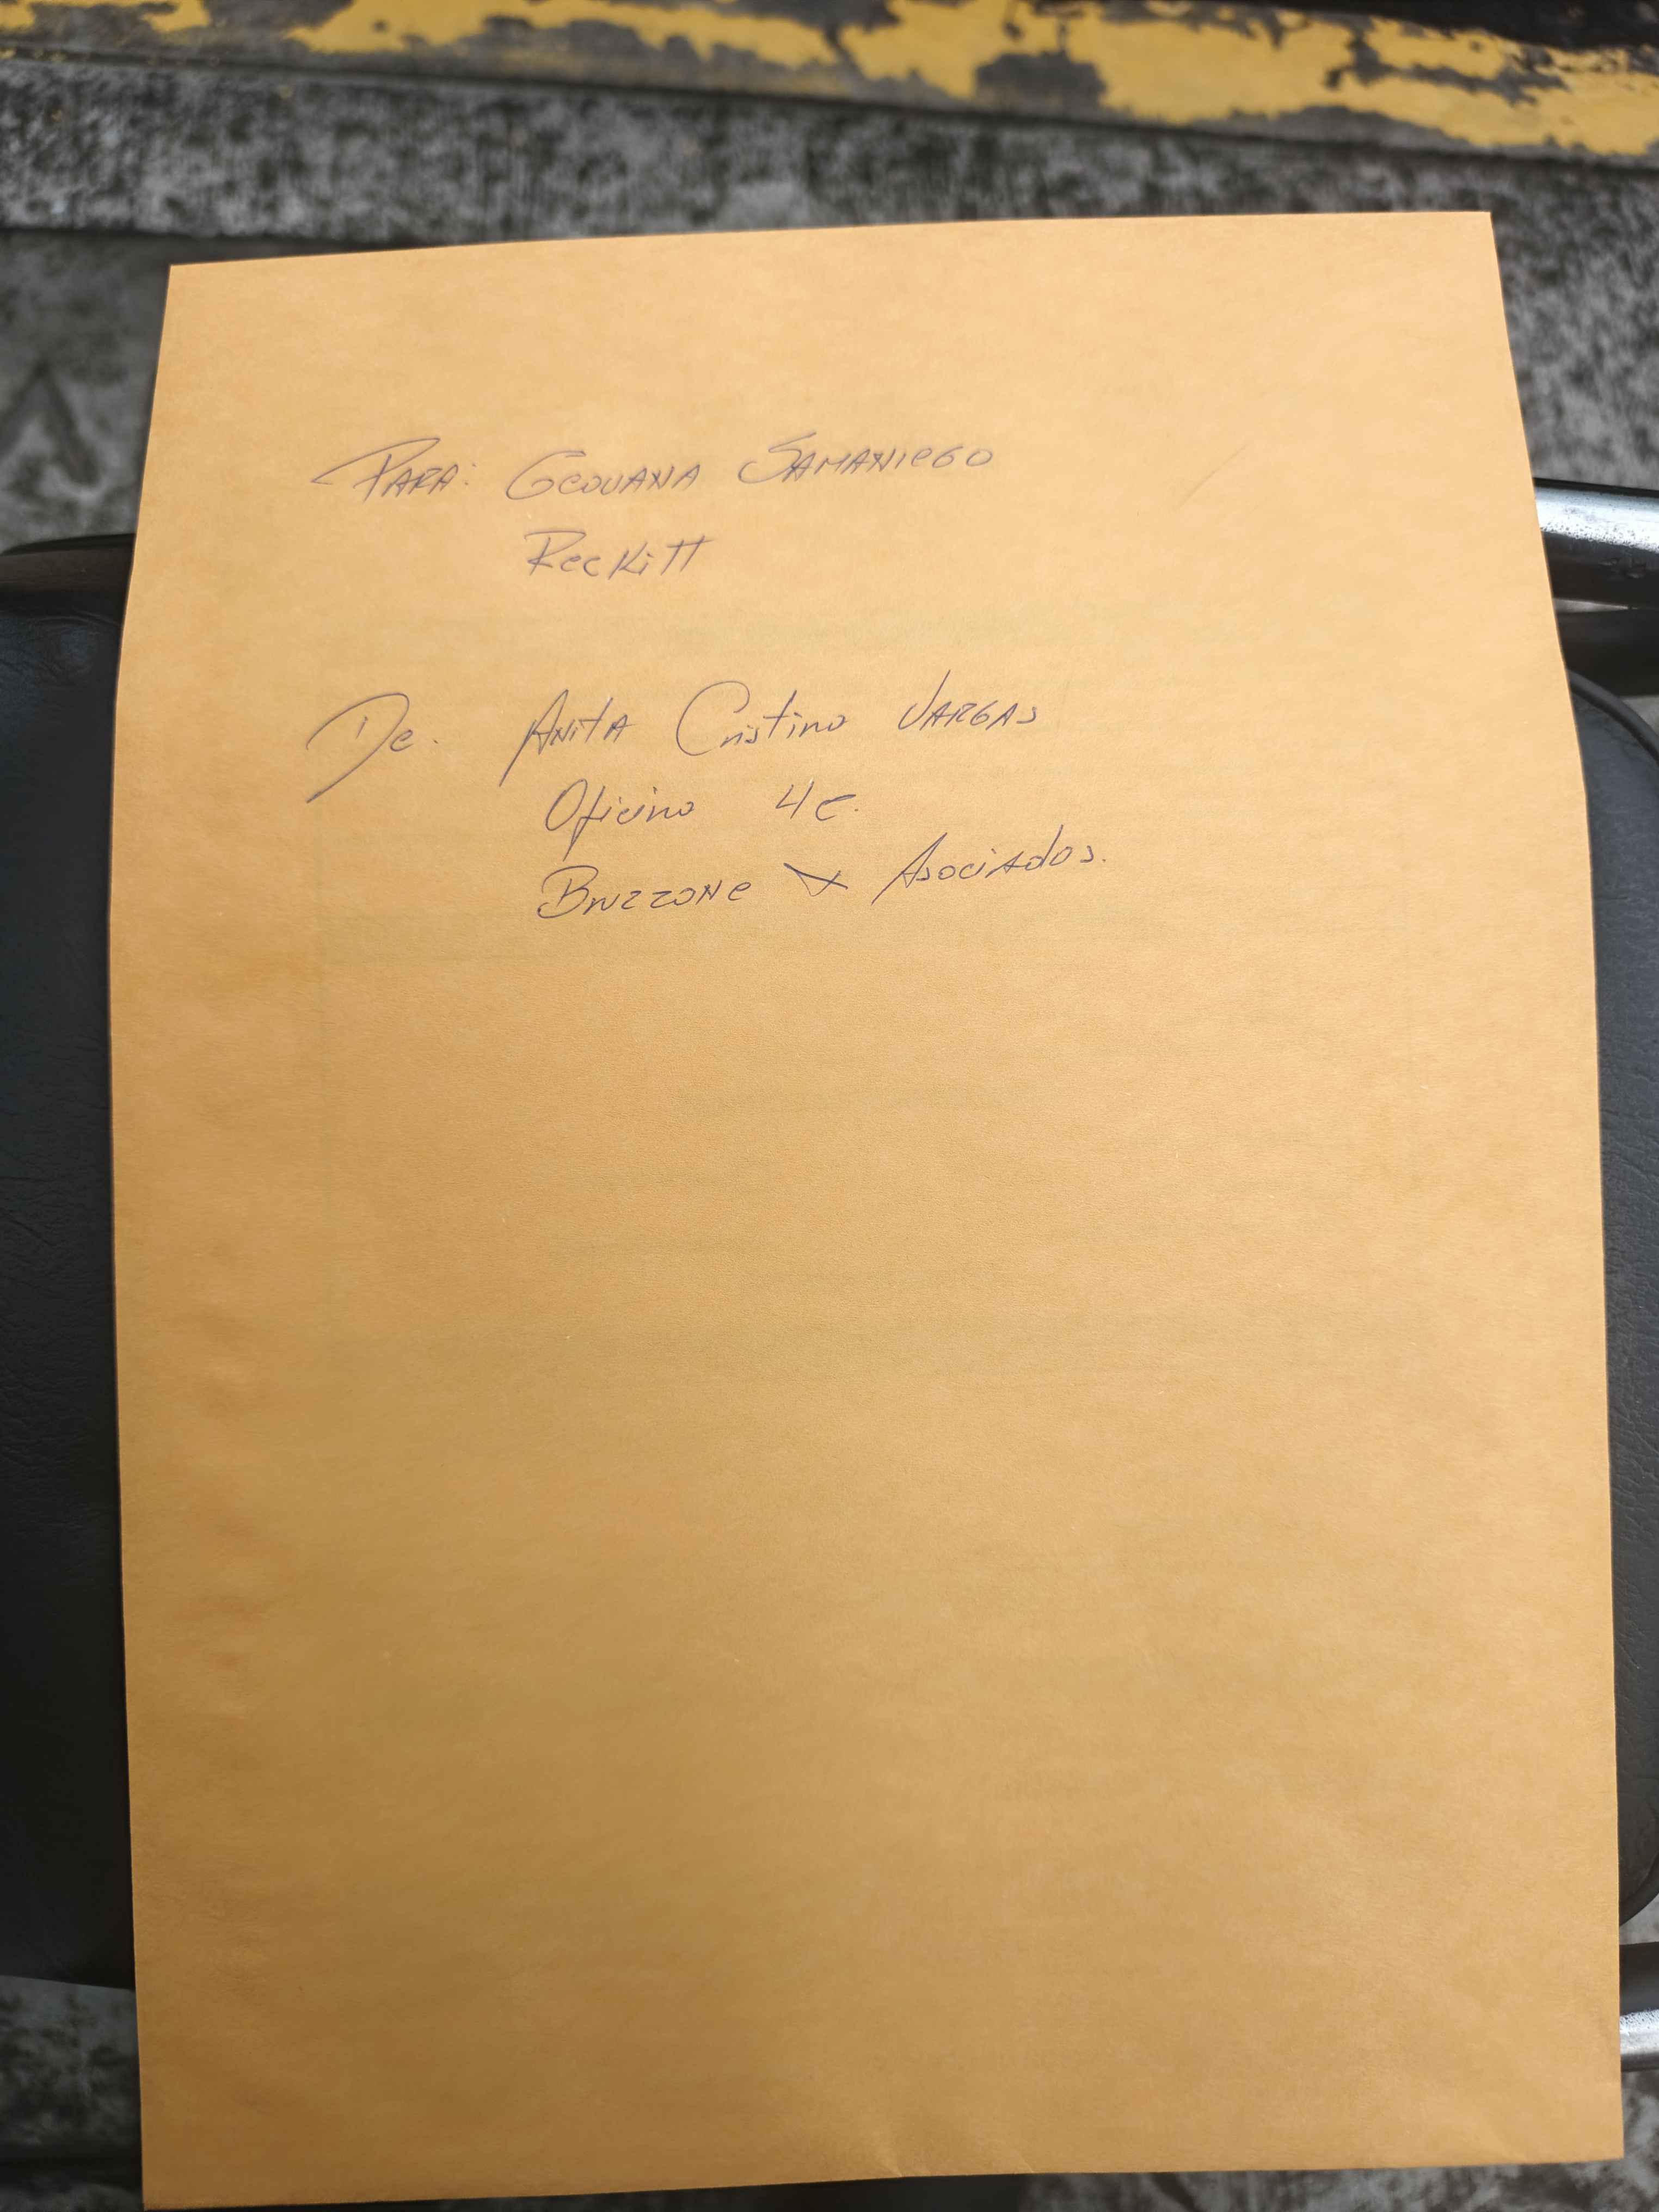 PARA: GEOVANA SAMANIEGO
Reckitt
De. ANITA Cristina VARGAS
Oficina 4C.
BRUZZONE y Asociados.